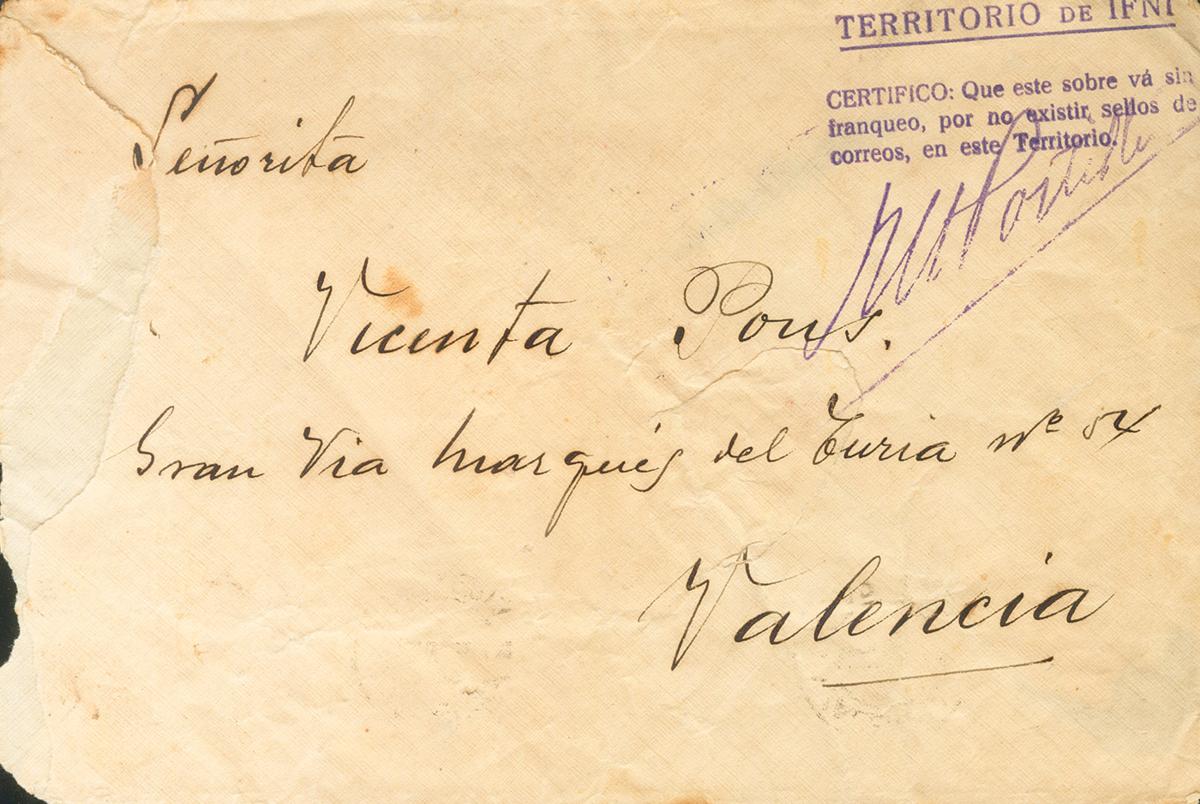 TERRITORIO DE IFNI
CERTIFICO: Que este sobre vá sin
franqueo, por no existir sellos de
correos, en este Territorio.
Señorita
Vicenta Pons.
Gran Via Marqués del Turia nº 54
Valencia